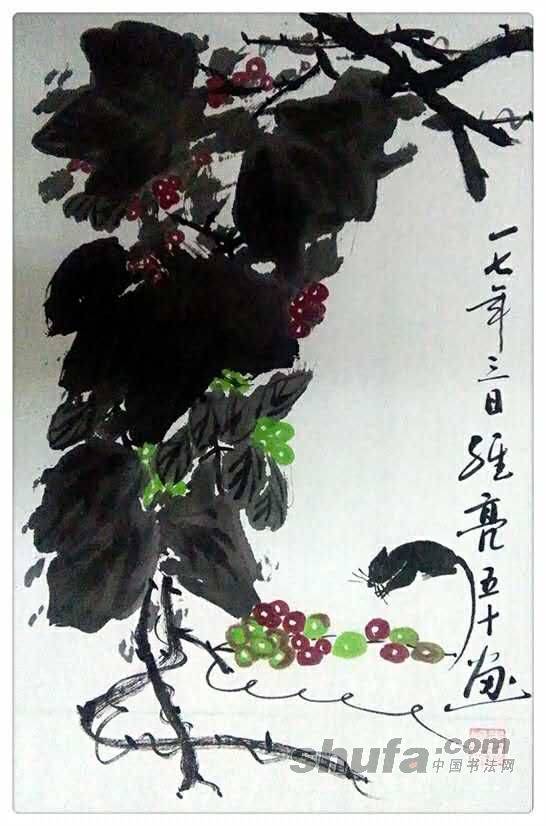 一七年三日维亮五十画
shufa.com
中国书法网